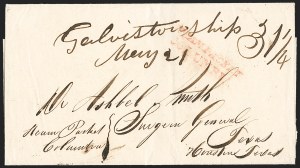 Galvistonship 31 1/4
May 21
Dr Ashbel Smith
Surgeon General
Steam Packet
Columbia
Texas
Houston Texas